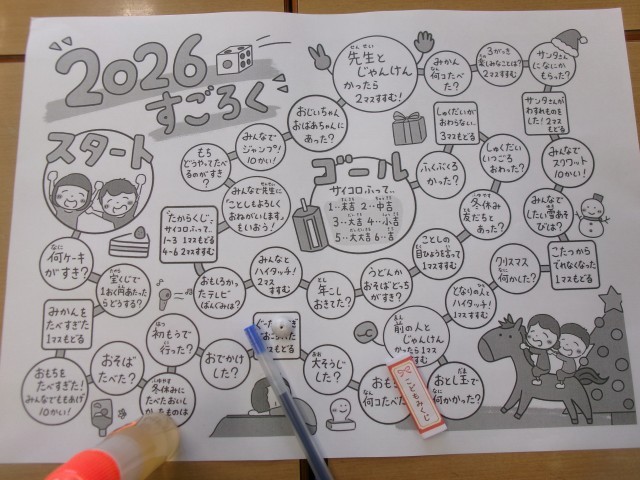 2026
すごろく
スタート
何ケーキ
がすき?
宝くじで
1おく円あたった
らどうする?
みかんを
たべすぎた
1マスもどる
おもちを
たべすぎた!
みんなでももあげ
10かい!
おそば
たべた?
冬休みに
たべたおいし
かったものは
初もうで
行った?
おでかけ
した?
おもしろかっ
たテレビ
ばんぐみは?
「たからくじ」で
サイコロふって…
1~3 1マスもどる
4~6 2マスすすむ
もち
どうやってたべ
るのがすき
?
みんなで先生に
「ことしもよろしく
おねがいします」
をいおう!
みんなと
ハイタッチ!
2マス
すすむ
みんなで
ジャンプ!
10かい!
おじいちゃん
おばあちゃんに
あった?
先生と
じゃんけん
かったら
2マスすすむ!
みかん
何コたべ
た?
3がっき
楽しみなことは?
2マスすすむ
サンタさん
になにか
もらった?
サンタさんが
わすれものを
した!2マス
もどる
みんなで
スクワット
10かい!
みんなで
したい雪あそ
びは?
こたつから
でれなくなった
1マスもどる
クリスマス
何かした?
となりの人と
ハイタッチ!
1マスすすむ
前の人と
じゃんけん
かったら1マス
すすむ
おとし玉で
何かかった?
おも
何コたべた
大そうじ
した?
年こし
おきてた?
うどんか
おそばどっち
がすき?
ことしの
目ひょうを言って
1マスすすむ
冬休み
友だちと
あった?
しゅくだい
いつごろ
おわった?
しゅくだいが
おわらない…
3マスもどる
ふくぶくろ
かった?
ゴール
サイコロふって…
1…末吉 2…中吉
3…大吉 4…小吉
5…大大吉 6…吉
こどもみくじ